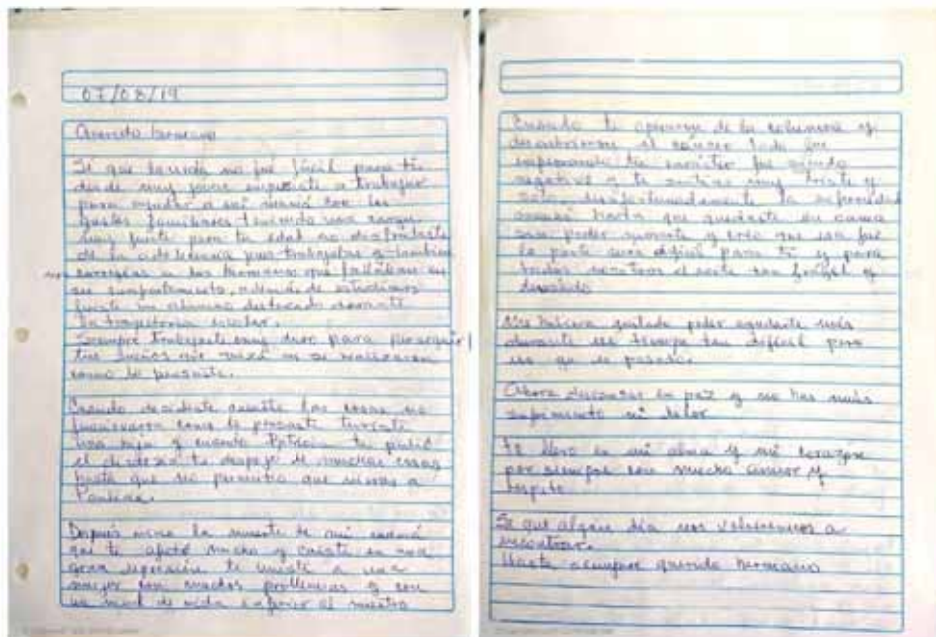 07/08/19
Querido hermano
Sé que la vida no fue fácil para ti
desde muy joven empezaste a trabajar
para ayudar a mi mamá con los
gastos familiares teniendo una carga
muy fuerte para tu edad no disfrutaste
de la adolescencia pues trabajabas y también
corregías a tus hermanos que fallaban en
su comportamiento, además de estudiar
fuiste un alumno destacado durante
tu trayectoria escolar.
Siempre trabajaste muy duro para perseguir
tus sueños que quizá no se realizaron
como lo pensaste.
Cuando decidiste casarte las cosas no
funcionaron como lo pensaste tuviste
una hija y cuando Patricia te pidió
el divorcio te despojó de muchas cosas
hasta que no permitió que vieras a
Después vino la muerte de mi mamá
que te afectó mucho y caíste en una
gran depresión te uniste a una
mujer con muchos problemas y con
un nivel de vida inferior al nuestro
Cuando te operaron de la columna y
descubrieron el cáncer todo fue
empeorando tu carácter fue siendo
negativo y te sentías muy triste y
solo, desafortunadamente la enfermedad
avanzó hasta que quedaste en cama
sin poder moverte y creo que esa fue
la parte más difícil para ti y para
todos nosotros el verte tan frágil y
Me hubiera gustado poder ayudarte más
durante ese tiempo tan difícil pero
eso ya es pasado.
Ahora descansas en paz y no hay más
sufrimiento ni dolor
Te llevo en mi alma y mi corazón
por siempre con mucho amor y
respeto
Se que algún día nos volveremos a
encontrar.
Hasta siempre querido hermano